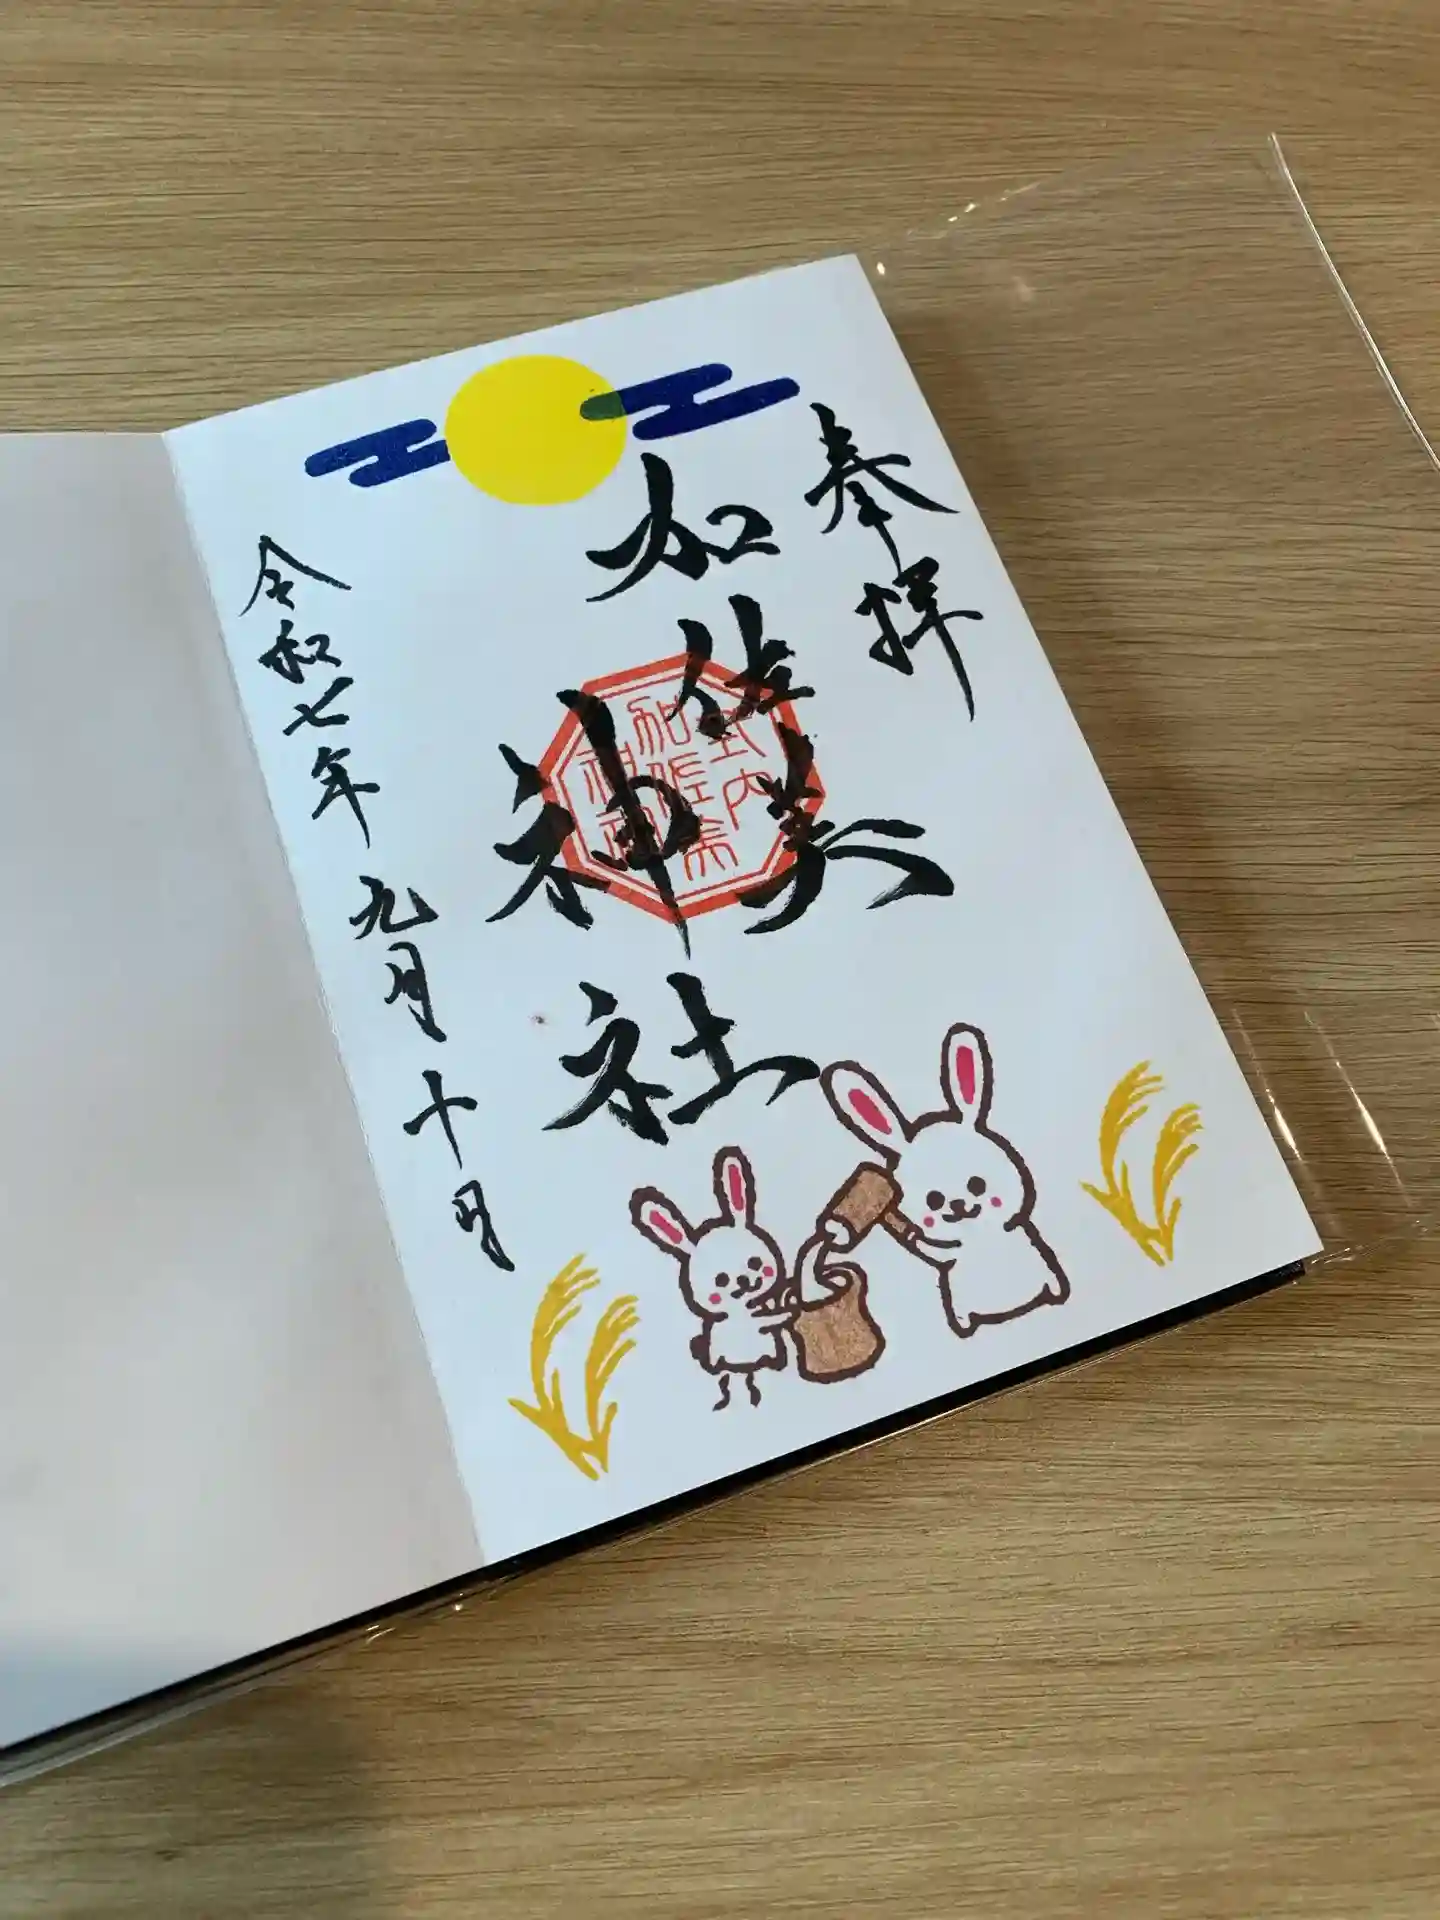 奉拝
加佐美神社
式内
加佐美
神社
令和七年九月十日